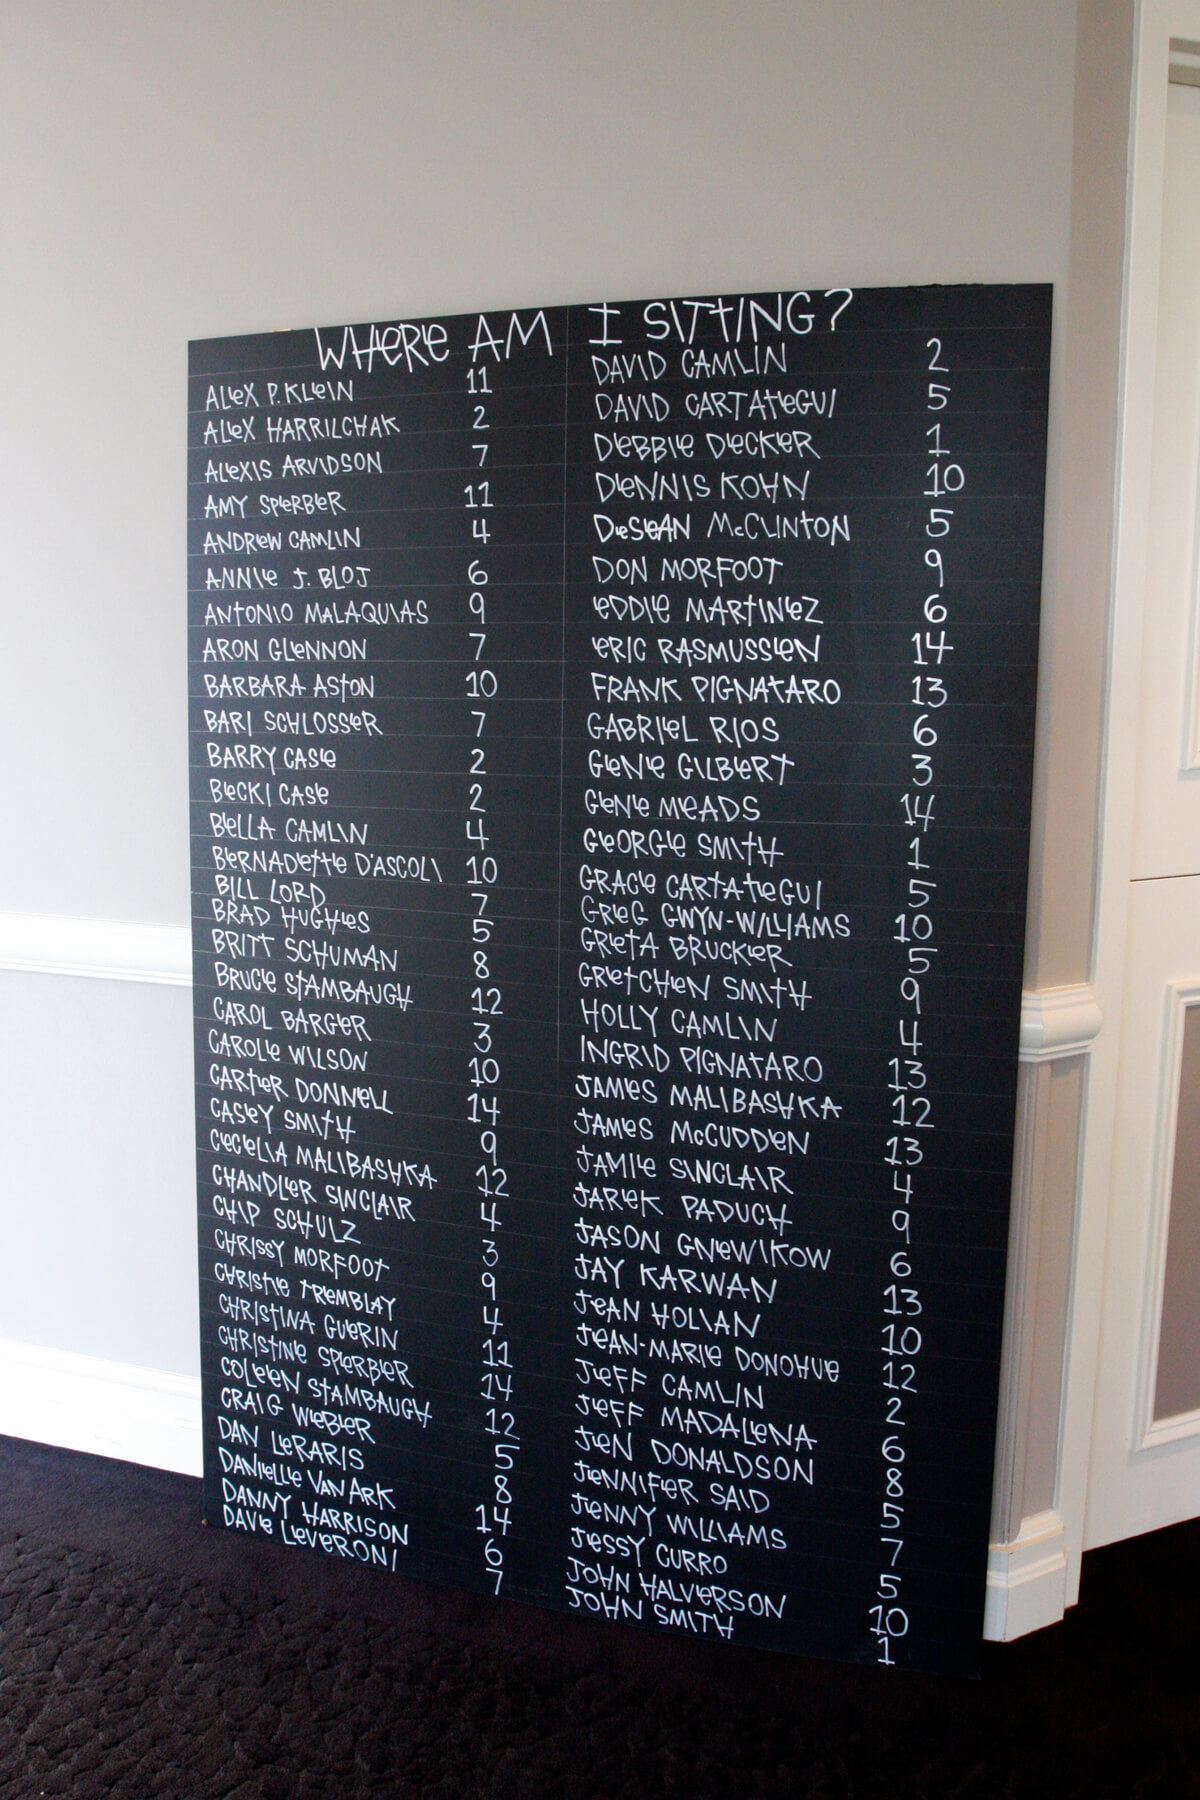 WHERE AM I SITTING?
ALEX P. KLEIN 11
ALEX HARRILCHAK 2
ALEXIS ARVIDSON 7
AMY SPERBER 11
ANDREW CAMLIN 4
ANNIE J. BLOJ 6
ANTONIO MALAQUIAS 9
ARON GLENNON 7
BARBARA ASTON 10
BARI SCHLOSSER 7
BARRY CASE 2
BECKI CASE 2
BELLA CAMLIN 4
BERNADETTE D'ASCOLI 10
BILL LORD 7
BRAD HUGHES 5
BRITT SCHUMAN 8
BRUCE STAMBAUGH 12
CAROL BARGER 3
CAROLE WILSON 10
CARTER DONNELL 14
CASEY SMITH 9
CECELIA MALIBASHKA 12
CHANDLER SINCLAIR 4
CHIP SCHULZ 3
CHRISSY MORFOOT 9
CHRISTIE TREMBLAY 4
CHRISTINA GUERIN 11
CHRISTINE SPERBER 14
COLEEN STAMBAUGH 12
CRAIG WEBER 5
DAN LERARIS 8
DANIELLE VAN ARK 14
DANNY HARRISON 6
DAVE LEVERONI 7
DAVID CAMLIN 2
DAVID CARTATEGUI 5
DEBBIE DECKER 1
DENNIS KOHN 10
DESEAN McCLINTON 5
DON MORFOOT 9
EDDIE MARTINEZ 6
ERIC RASMUSSEN 14
FRANK PIGNATARO 13
GABRIEL RIOS 6
GENE GILBERT 3
GENE MEADS 14
GEORGE SMITH 1
GRACE CARTATEGUI 5
GREG GWYN-WILLIAMS 10
GRETA BRUCKER 5
GRETCHEN SMITH 9
HOLLY CAMLIN 4
INGRID PIGNATARO 13
JAMES MALIBASHKA 12
JAMES McCUDDEN 13
JAMIE SINCLAIR 4
JAREK PADUCH 9
JASON GNEWIKOW 6
JAY KARWAN 13
JEAN HOLIAN 10
JEAN-MARIE DONOHUE 12
JEFF CAMLIN 2
JEFF MADALENA 6
JEN DONALDSON 8
JENNIFER SAID 5
JENNY WILLIAMS 7
JESSY CURRO 5
JOHN HALVERSON 10
JOHN SMITH 1